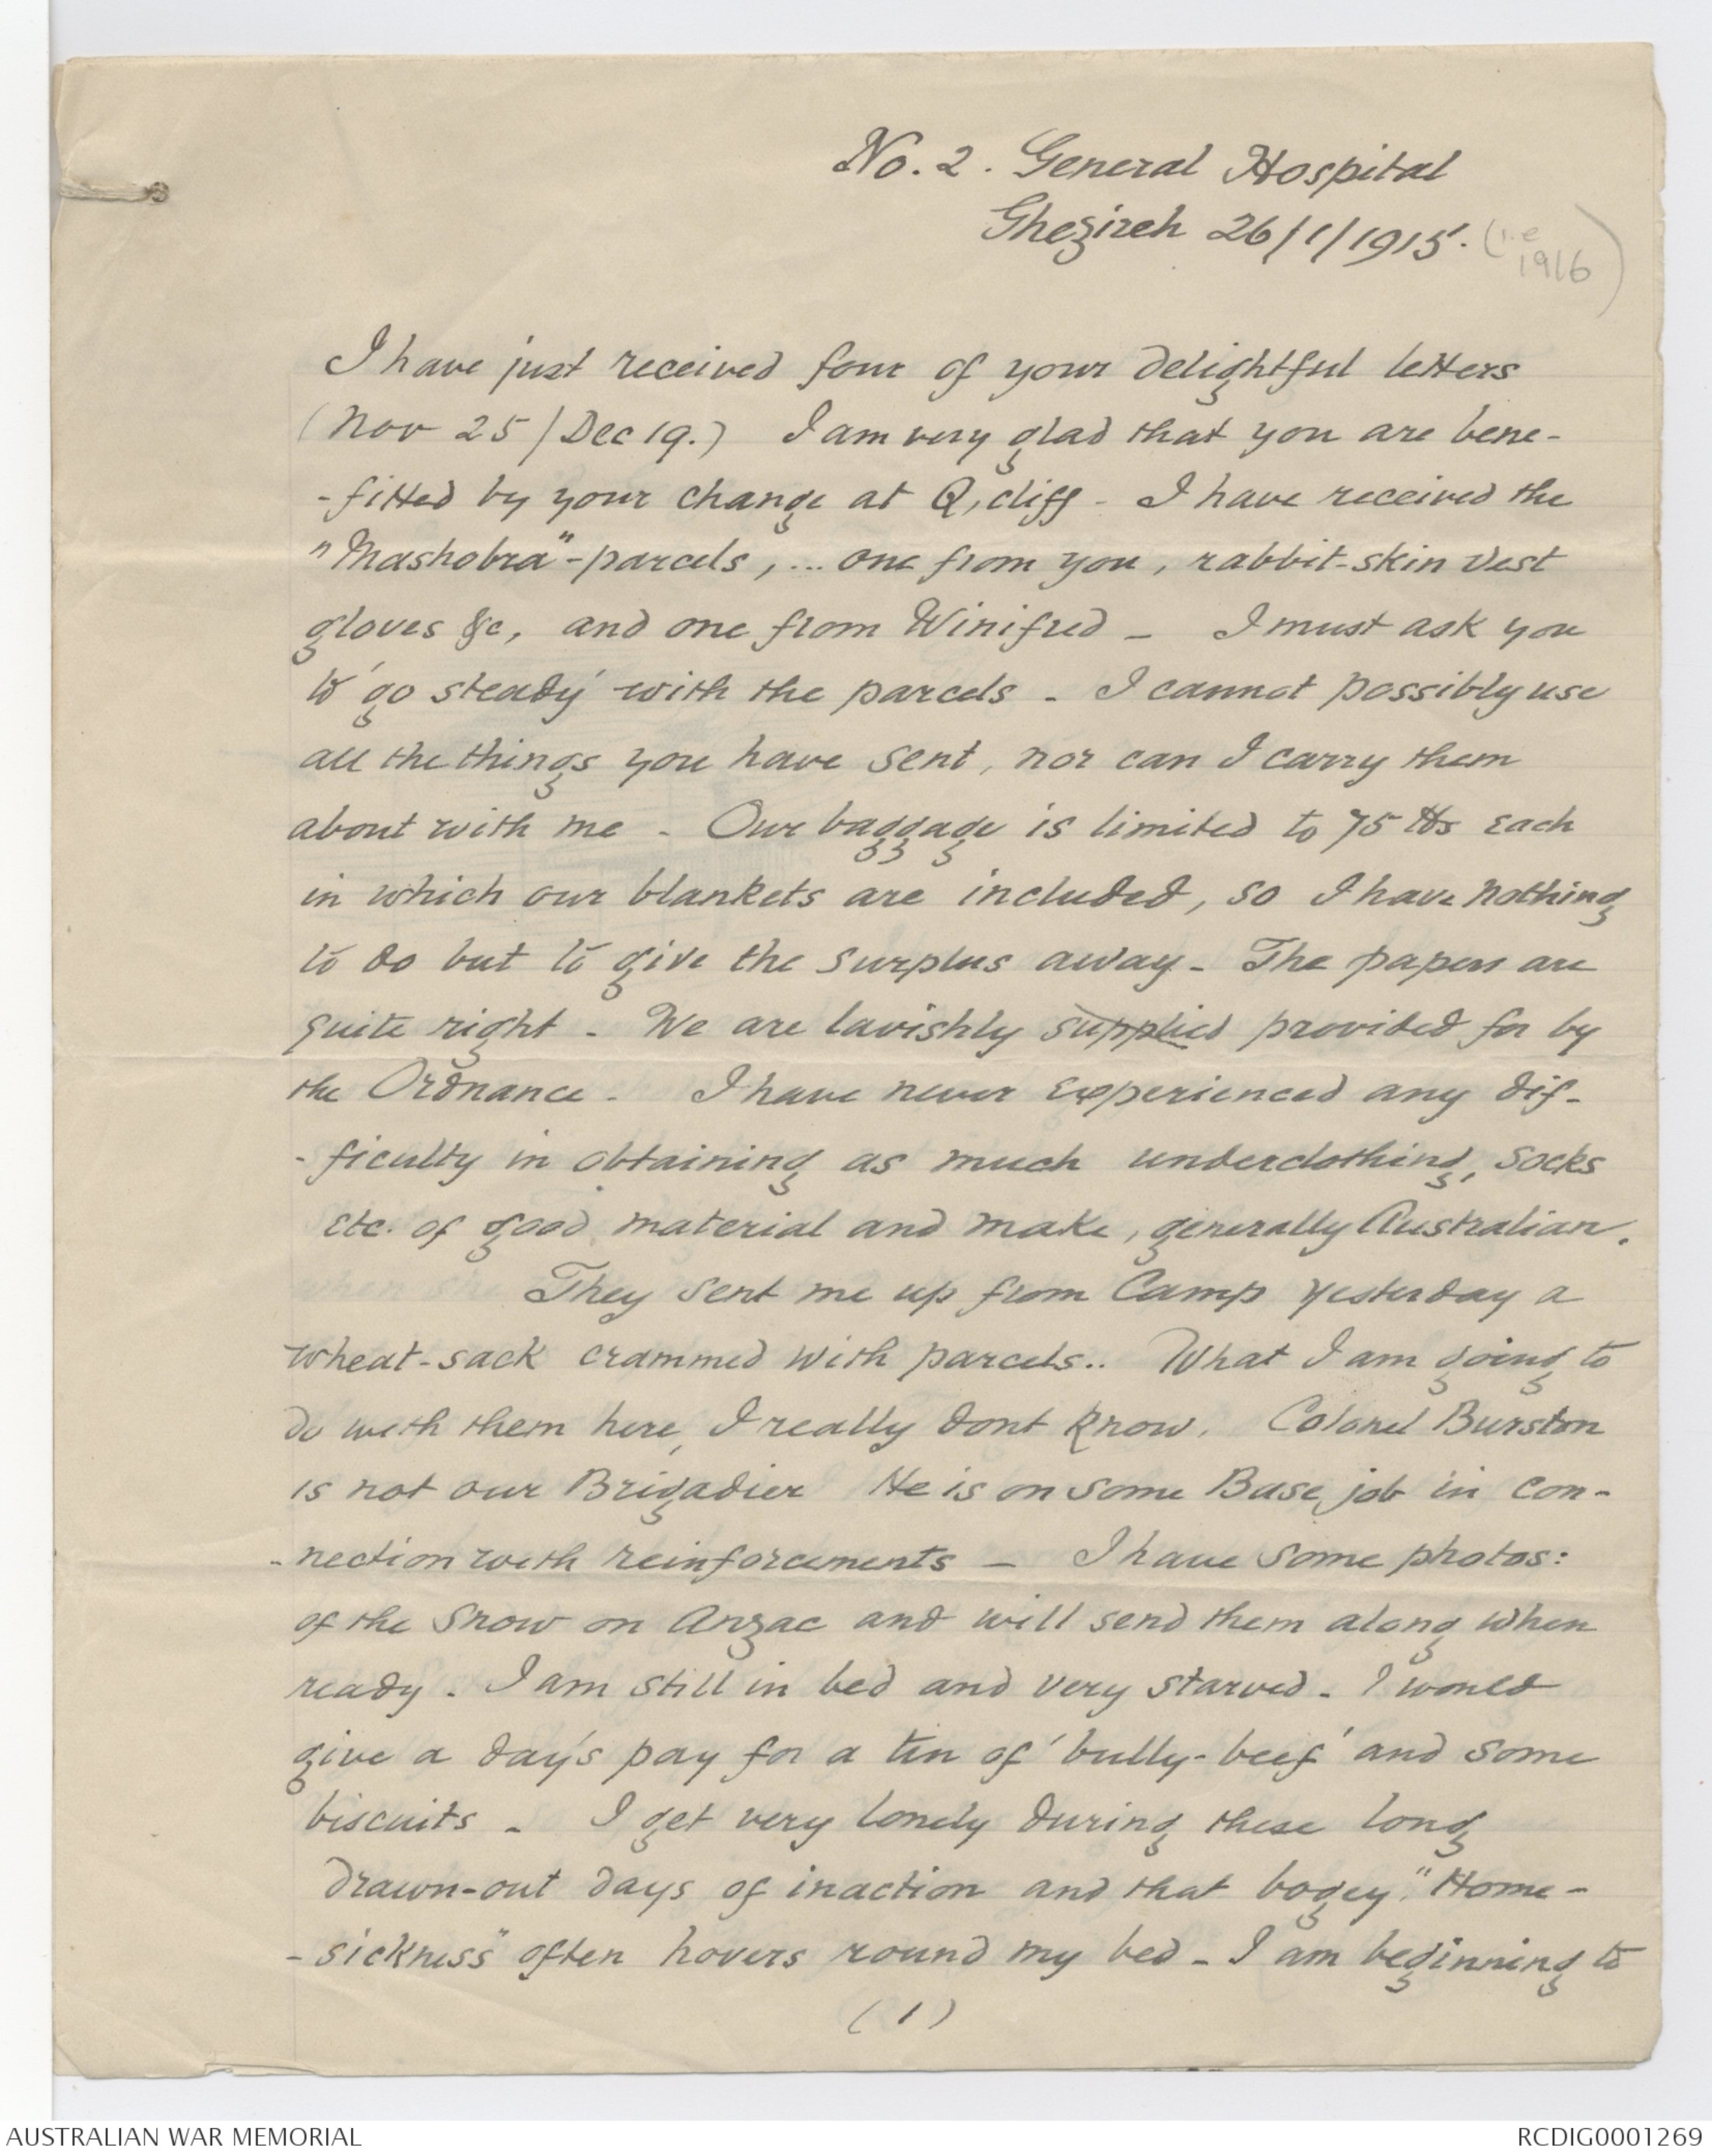 No. 2. General Hospital
Ghezireh 26/1/1915. (i.e
1916)
I have just received four of your delightful letters
(Nov 25/Dec 19.) I am very glad that you are bene-
-fitted by your change at Q,cliff - I have received the
"Mashobra"-parcels, ... one from you, rabbit-skin vest
gloves &c, and one from Winifred - I must ask you
to 'go steady' with the parcels - I cannot possibly use
all the things you have sent, nor can I carry them
about with me - Our baggage is limited to 75 lbs each
in which our blankets are included, so I have nothing
to do but to give the surplus away - The papers are
quite right - We are lavishly supplied provided for by
the Ordnance - I have never experienced any dif-
-ficulty in obtaining as much underclothing, socks
etc. of good material and make, generally Australian.
They sent me up from Camp yesterday a
wheat-sack crammed with parcels.. What I am going to
do with them here, I really dont know. Colonel Burston
is not our Brigadier He is on some Base job in con-
-nection with reinforcements - I have some photos:
of the snow on Anzac and will send them along when
ready - I am still in bed and very starved - I would
give a day's pay for a tin of 'bully-beef' and some
biscuits - I get very lonely during these long
drawn-out days of inaction and that bogey "Home-
-sickness" often hovers round my bed - I am beginning to
(1)
AUSTRALIAN WAR MEMORIAL
RCDIG0001269